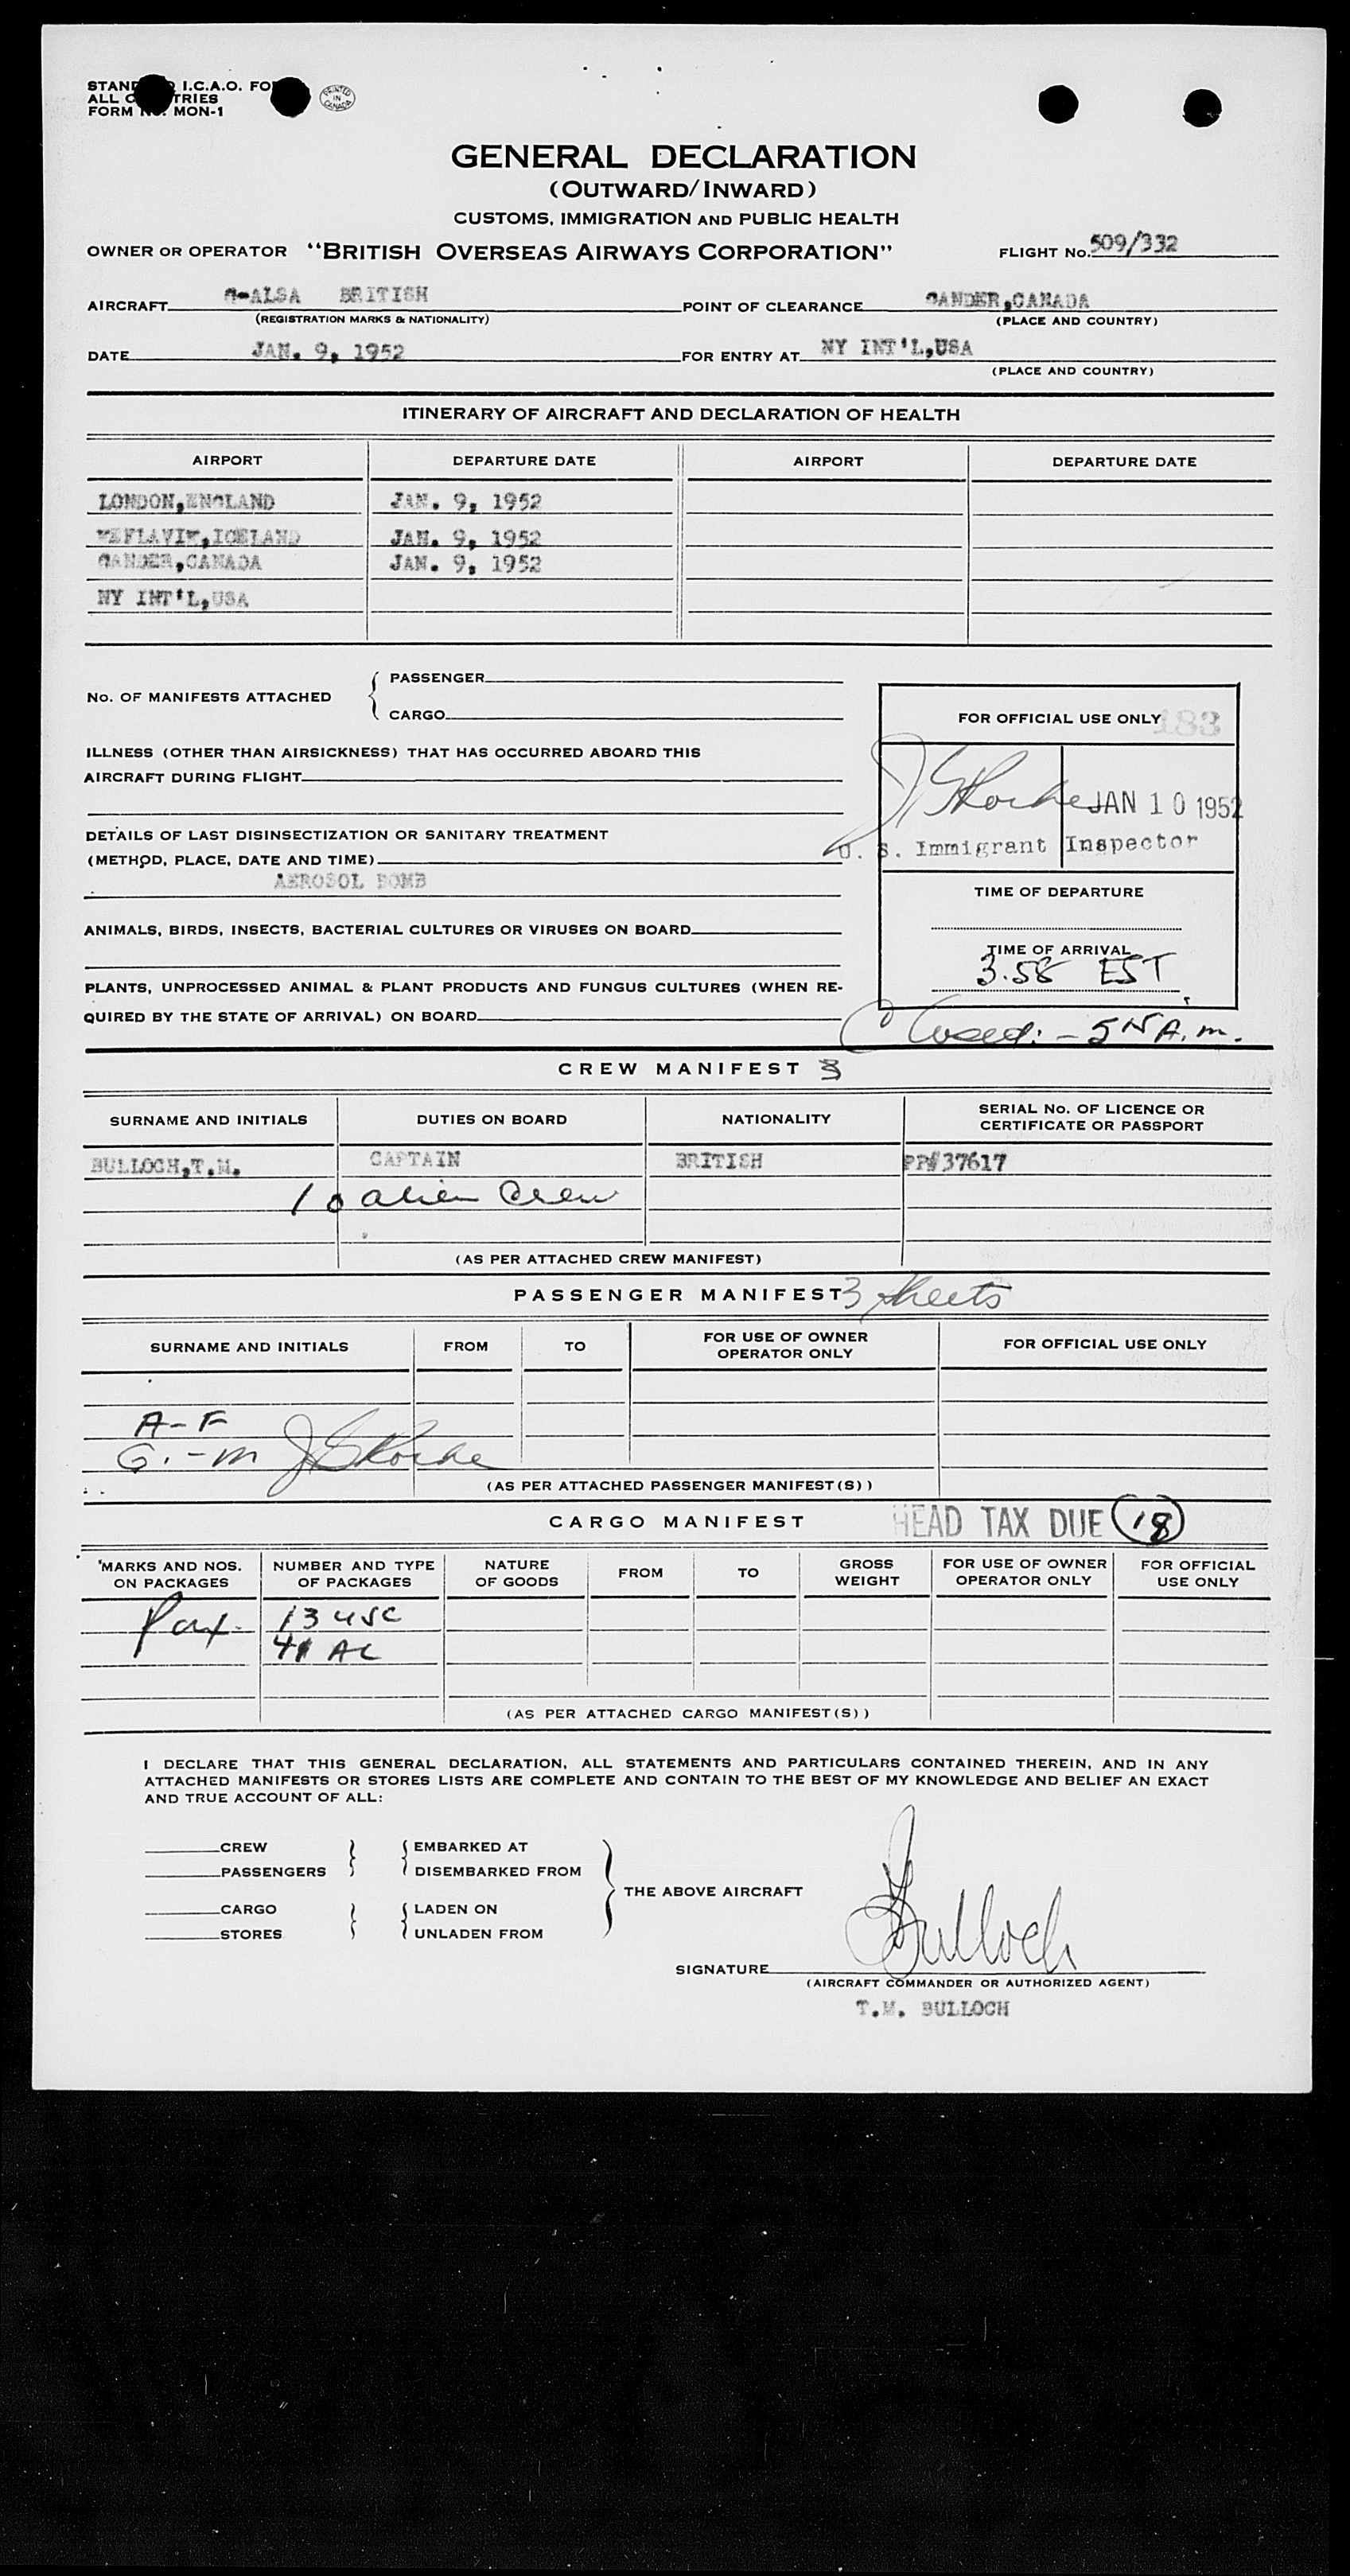 I.C.A.O.
ALL
FORM MON-1
PRINTED IN CANADA
GENERAL DECLARATION
(OUTWARD/INWARD)
CUSTOMS, IMMIGRATION AND PUBLIC HEALTH
OWNER OR OPERATOR "BRITISH OVERSEAS AIRWAYS CORPORATION" FLIGHT No. 509/332
AIRCRAFT G-ALSA BRITISH POINT OF CLEARANCE GANDER,CANADA
(REGISTRATION MARKS & NATIONALITY) (PLACE AND COUNTRY)
DATE JAN. 9, 1952 FOR ENTRY AT NY INT'L,USA
(PLACE AND COUNTRY)
ITINERARY OF AIRCRAFT AND DECLARATION OF HEALTH
AIRPORT DEPARTURE DATE AIRPORT DEPARTURE DATE
LONDON,ENGLAND JAN. 9, 1952
KEFLAVIK,ICELAND JAN. 9, 1952
GANDER,CANADA JAN. 9, 1952
NY INT'L,USA
No. OF MANIFESTS ATTACHED
PASSENGER
CARGO
ILLNESS (OTHER THAN AIRSICKNESS) THAT HAS OCCURRED ABOARD THIS
AIRCRAFT DURING FLIGHT
DETAILS OF LAST DISINSECTIZATION OR SANITARY TREATMENT
(METHOD, PLACE, DATE AND TIME)
AEROSOL BOMB
ANIMALS, BIRDS, INSECTS, BACTERIAL CULTURES OR VIRUSES ON BOARD
PLANTS, UNPROCESSED ANIMAL & PLANT PRODUCTS AND FUNGUS CULTURES (WHEN RE-
QUIRED BY THE STATE OF ARRIVAL) ON BOARD
FOR OFFICIAL USE ONLY 183
JAN 10 1952
U. S. Immigrant Inspector
TIME OF DEPARTURE
TIME OF ARRIVAL
3.58 EST
Closed: - 5 A.m.
CREW MANIFEST 3
SURNAME AND INITIALS DUTIES ON BOARD NATIONALITY SERIAL No. OF LICENCE OR
CERTIFICATE OR PASSPORT
BULLOCH,T.M. CAPTAIN BRITISH PP#37617
10 alien Crew
(AS PER ATTACHED CREW MANIFEST)
PASSENGER MANIFEST 3 sheets
SURNAME AND INITIALS FROM TO FOR USE OF OWNER
OPERATOR ONLY FOR OFFICIAL USE ONLY
A-F
G.-M
(AS PER ATTACHED PASSENGER MANIFEST(S))
CARGO MANIFEST HEAD TAX DUE 18
MARKS AND NOS.
ON PACKAGES NUMBER AND TYPE
OF PACKAGES NATURE
OF GOODS FROM TO GROSS
WEIGHT FOR USE OF OWNER
OPERATOR ONLY FOR OFFICIAL
USE ONLY
Pax. 13 USC
41 AL
(AS PER ATTACHED CARGO MANIFEST(S))
I DECLARE THAT THIS GENERAL DECLARATION, ALL STATEMENTS AND PARTICULARS CONTAINED THEREIN, AND IN ANY
ATTACHED MANIFESTS OR STORES LISTS ARE COMPLETE AND CONTAIN TO THE BEST OF MY KNOWLEDGE AND BELIEF AN EXACT
AND TRUE ACCOUNT OF ALL:
CREW EMBARKED AT
PASSENGERS DISEMBARKED FROM
THE ABOVE AIRCRAFT
CARGO LADEN ON
STORES UNLADEN FROM
SIGNATURE Bulloch
(AIRCRAFT COMMANDER OR AUTHORIZED AGENT)
T.M. BULLOCH